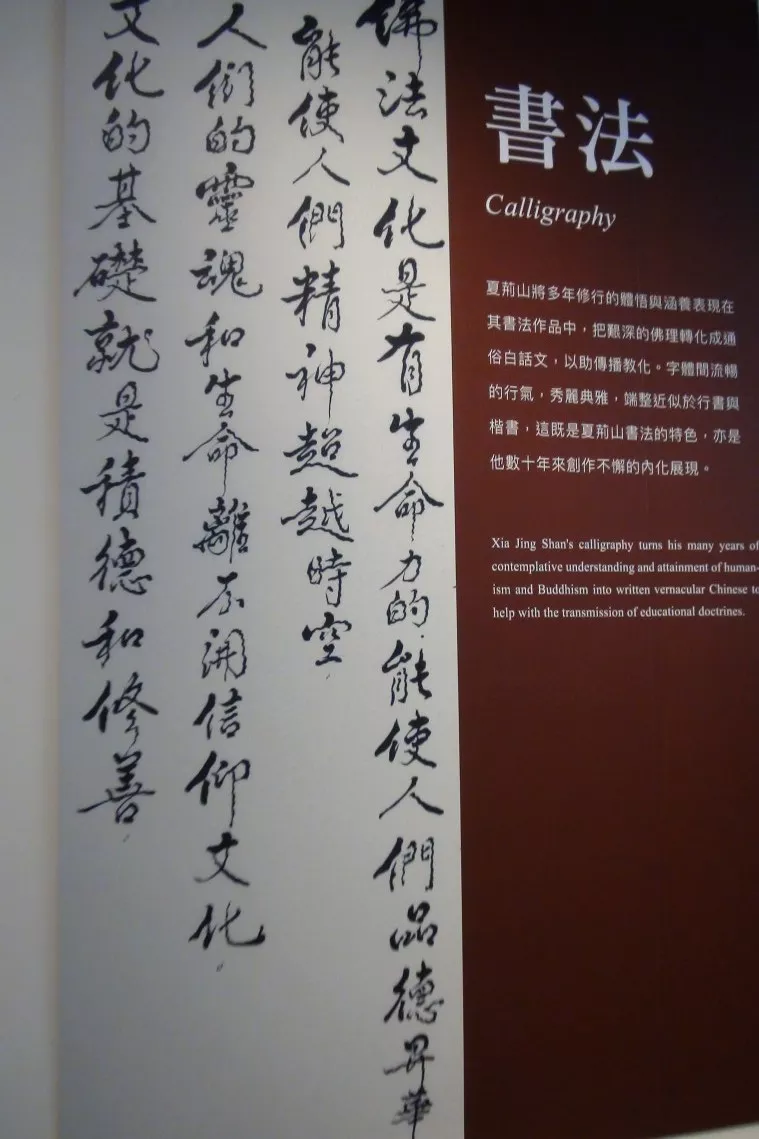 佛法文化是有生命力的，能使人們品德昇華
能使人們精神超越時空，
人們的靈魂和生命離不開信仰文化，
文化的基礎就是積德和修善，
書法
Calligraphy
夏荊山將多年修行的體悟與涵養表現在
其書法作品中，把艱深的佛理轉化成通
俗白話文，以助傳播教化。字體間流暢
的行氣，秀麗典雅，端整近似於行書與
楷書，這既是夏荊山書法的特色，亦是
他數十年來創作不懈的內化展現。
Xia Jing Shan's calligraphy turns his many years of
contemplative understanding and attainment of human-
ism and Buddhism into written vernacular Chinese to
help with the transmission of educational doctrines.